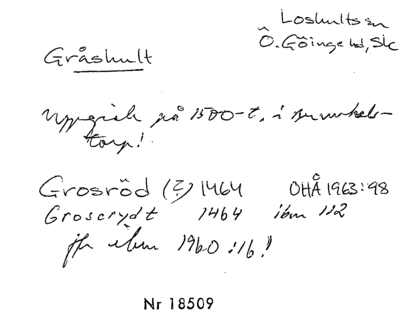 Loshults sn
Gråshult
Ö. Göinge hd, Sk
Uppgick på 1500-t. i
torp!
Grosröd (?) 1464 OHÅ 1963:98
Groserydt 1464 ibm 112
jfr ibm 1960:16!
Nr 18509